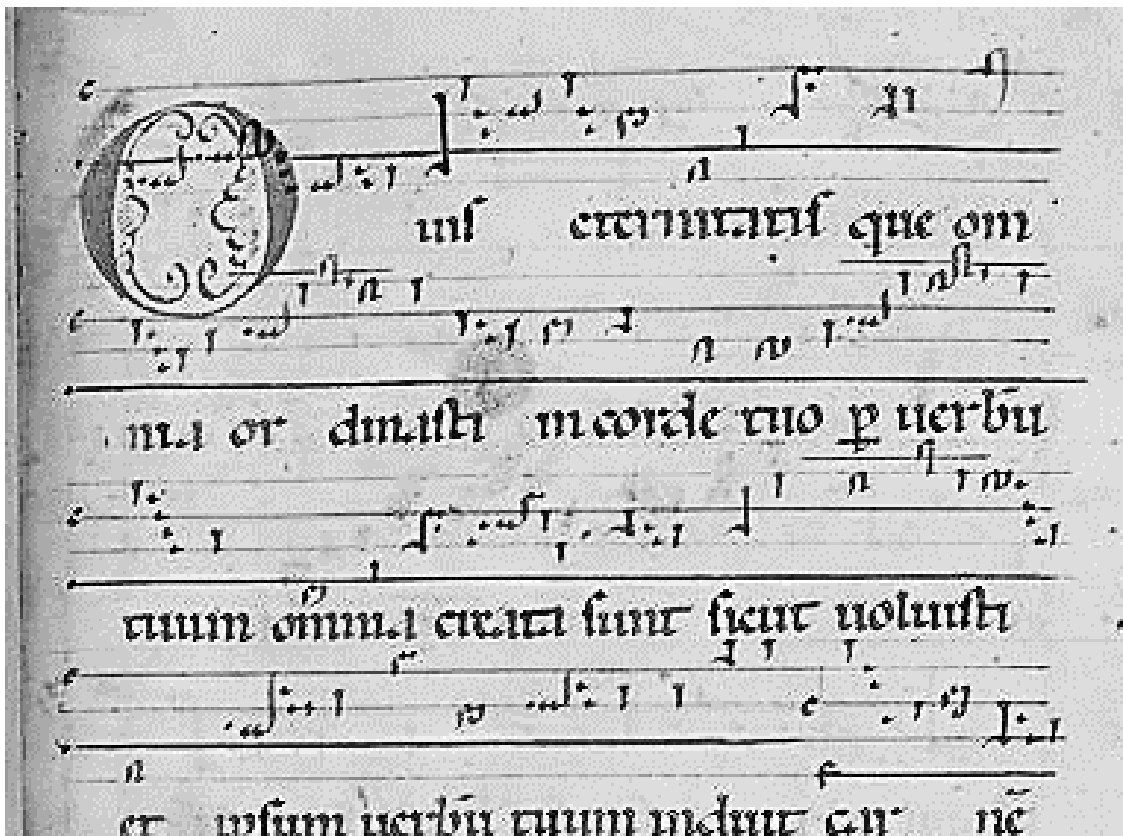 O uis eternitatis que om
nia or dinasti in corde tuo p uerbū
tuum omnia creata sunt sicut uoluisti
et ipsum uerbū tuum induit car nē